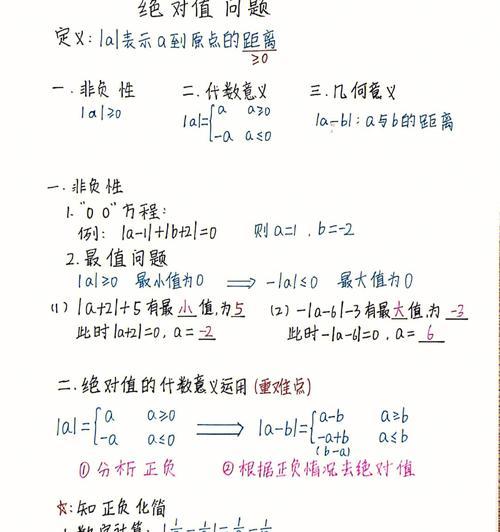 绝对值问题
定义: |a|表示a到原点的距离
≥0
一.非负性 二.代数意义 三.几何意义
|a|≥0 |a|={a a≥0 |a-b|: a与b的距离
-a a≤0
一.非负性
1. "0 0"方程:
例: |a-1|+|b+2|=0 则a=1, b=-2
2.最值问题
|a|≥0 最小值为0 ⟹ -|a|≤0 最大值为0
(1) |a+2|+5有最小值,为5 (2) -|a-6|-3有最大值,为-3
此时|a+2|=0, a=-2 此时-|a-6|=0, a=6
二.绝对值的代数意义运用(重难点)
|a|={a a≥0 ⟹ |a-b|={a-b a≥b
-a a≤0 -a+b a≤b
(b-a)
①分析正负 ②根据正负情况去绝对值
☆:知正负化简